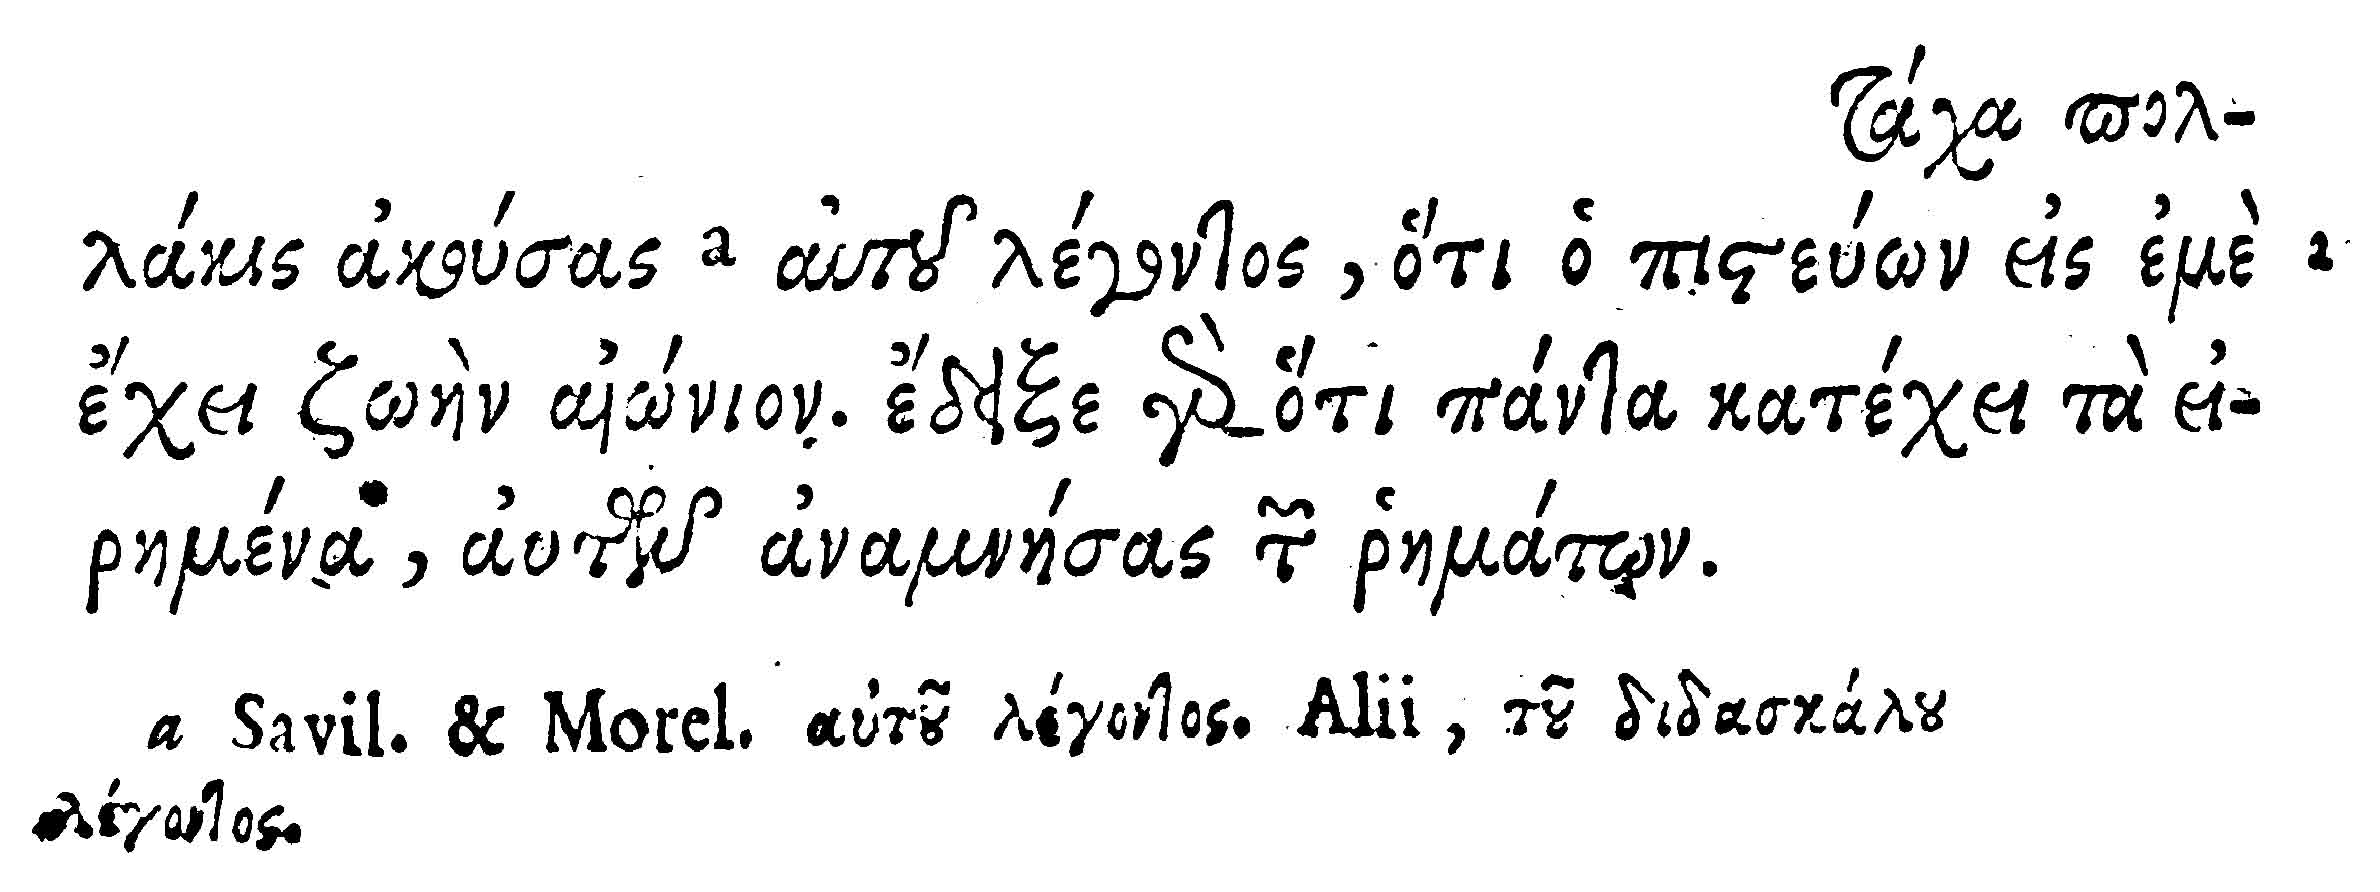 Τάχα πολ-
λάκις ἀκούσας a αὐτοῦ λέγοντος, ὅτι ὁ πιστεύων εἰς ἐμὲ
ἔχει ζωὴν αἰώνιον. ἔδειξε γὰρ ὅτι πάντα κατέχει τὰ εἰ-
ρημένα, αὐτῶν ἀναμνήσας τῶν ῥημάτων.
a Savil. & Morel. αὐτοῦ λέγοντος. Alii, τοῦ διδασκάλου
λέγοντος.